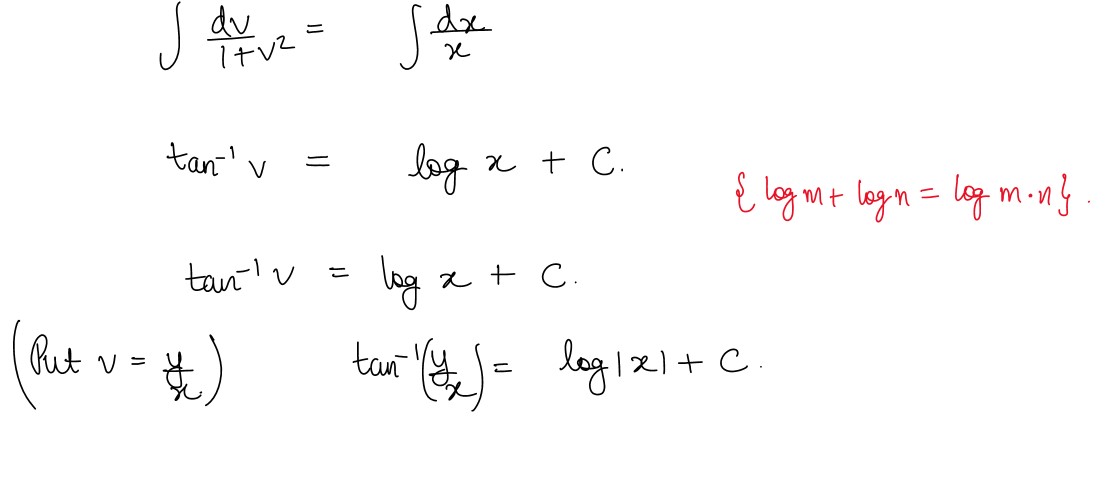 ∫ dv/(1+v²) = ∫ dx/x
tan⁻¹ v = log x + C.
{ log m + log n = log m·n } .
tan⁻¹ v = log x + C.
(Put v = y/x) tan⁻¹(y/x) = log|x| + C.